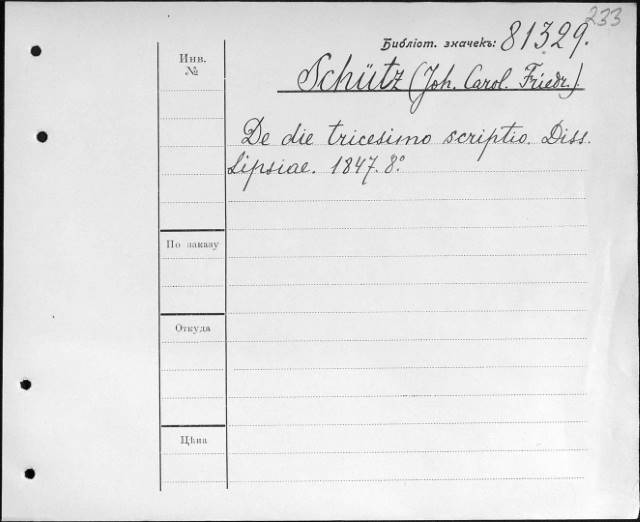 233
Библіот. значекъ: 81329.
Инв.
№
Schütz (Joh. Carol. Friedr.).
De die tricesimo scriptio. Diss.
Lipsiae. 1847. 8°.
По заказу
Откуда
Цѣна